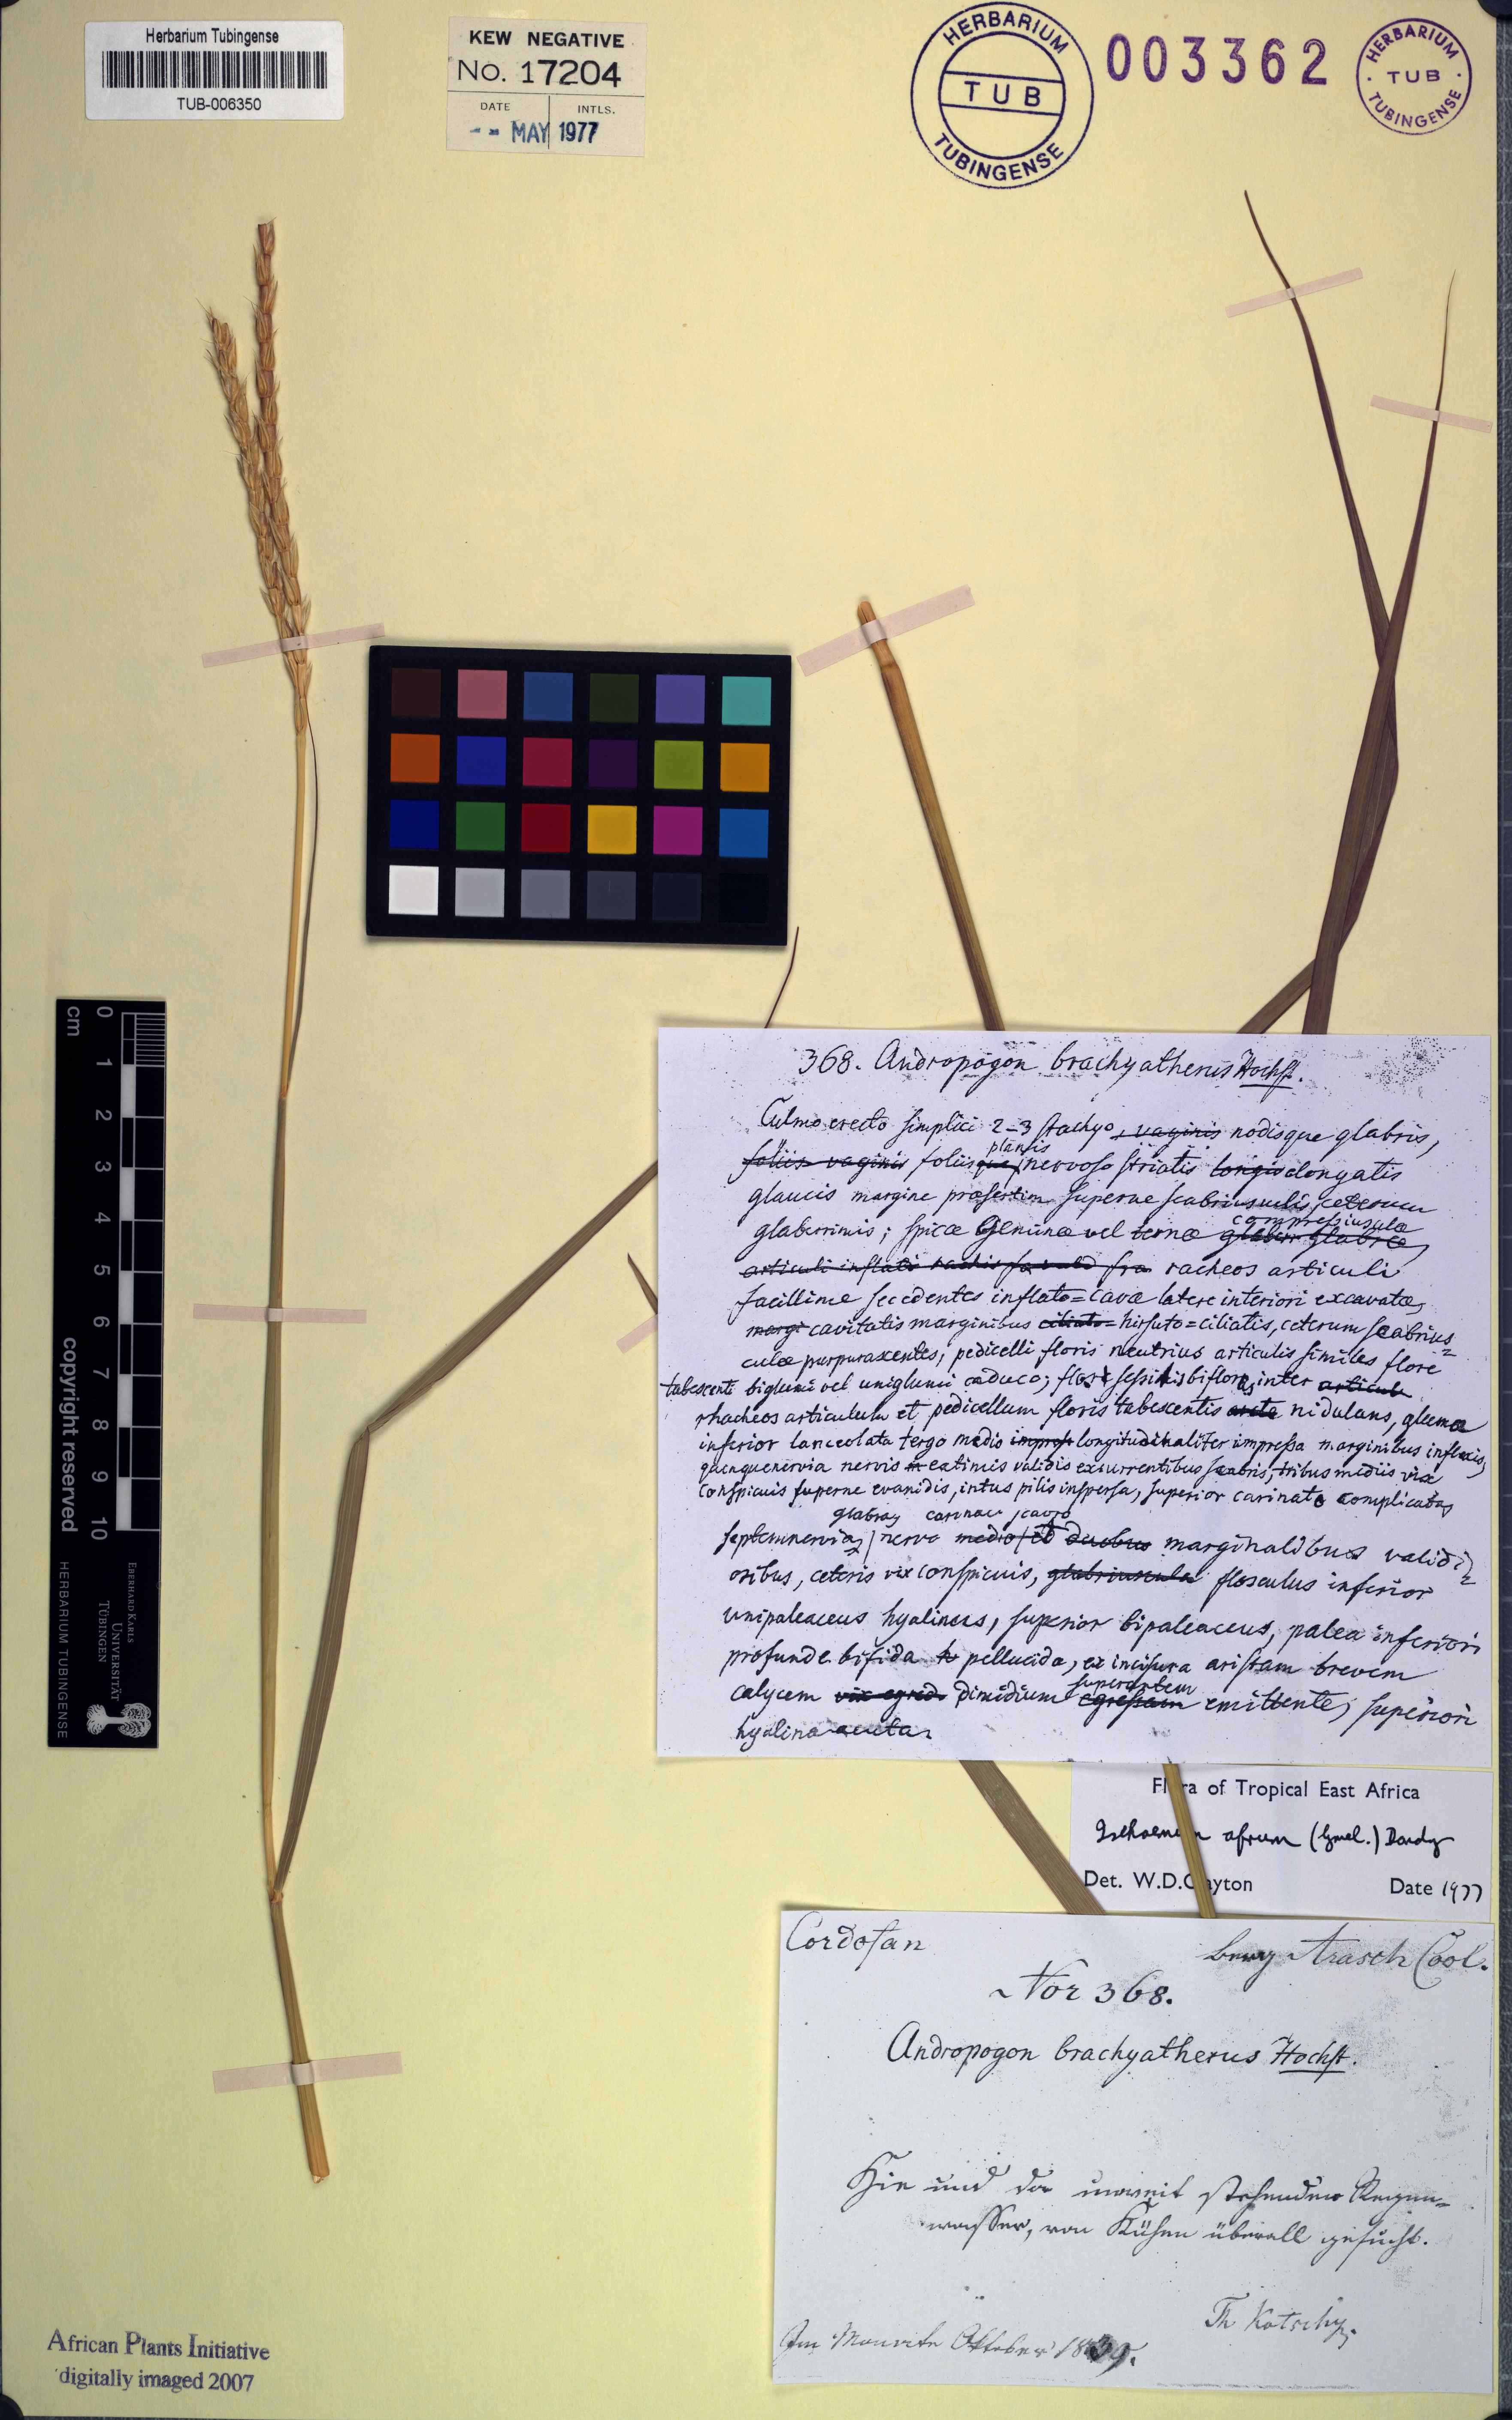 Herbarium Tubingense
TUB-006350
KEW NEGATIVE
No. 17204
DATE INTLS.
-- MAY 1977
HERBARIUM TUBINGENSE
TUB
003362
HERBARIUM TUBINGENSE
TUB
368. Andropogon brachyatherus Hochst.
Culmo erecto simplici 2-3 stachyo, vaginis nodisque glabris,
planis
foliis vaginis foliisque nervoso striatis longis elongatis
glaucis margine praesertim superne scabriusculis, ceterum
compressiusculae
glaberrimis; spicae geminae vel ternae glaberr glabrae,
articuli inflati rachis fra racheos articuli
facillime secedentes inflato=cavae latere interiori excavatae,
margi cavitatis marginibus ciliato= hirsuto=ciliatis, ceterum scabrius=
culae purpurascentes; pedicelli floris neutrius articulis similes flore
tabescenti biglumi vel uniglumi caduco; flos sessilis biflorus, inter articulu
rhacheos articulum et pedicellum floris tabescentis arcte nidulans, gluma
inferior lanceolata tergo medio impress longitudinaliter impressa marginibus inflexis,
quinquenervia nervis extimis validis excurrentibus scabris, tribus mediis vix
conspicuis superne evanidis, intus pilis inspersa, superior carinato complicata,
glabra, carinae scabro
septemnervia, nervo medio et duobus marginalibus validi=
oribus, ceteris vix conspicuis, glabriuscula flosculus inferior
unipaleaceus hyalinus, superior bipaleaceus, palea inferiori
profunde bifida pellucida, ex incisura aristam brevem
superantem
calycem vix egred dimidium egressam emittente, superiori
hyalina acuta.
Flora of Tropical East Africa
Ischaemum afrum (Gmel.) Dandy
Det. W.D.Clayton Date 1977
Cordofan berg Arasch Cool.
Nor 368.
Andropogon brachyatherus Hochst.
Hie und da unweit stehenden Regen=
wasser, von Kühen überall gesucht.
Th Kotschy.
Im Monate Oktober 1839.
cm 0 1 2 3 4 5 6 7 8 9 10
copyright reserved
HERBARIUM TUBINGENSE
EBERHARD KARLS
UNIVERSITÄT
TÜBINGEN
African Plants Initiative
digitally imaged 2007